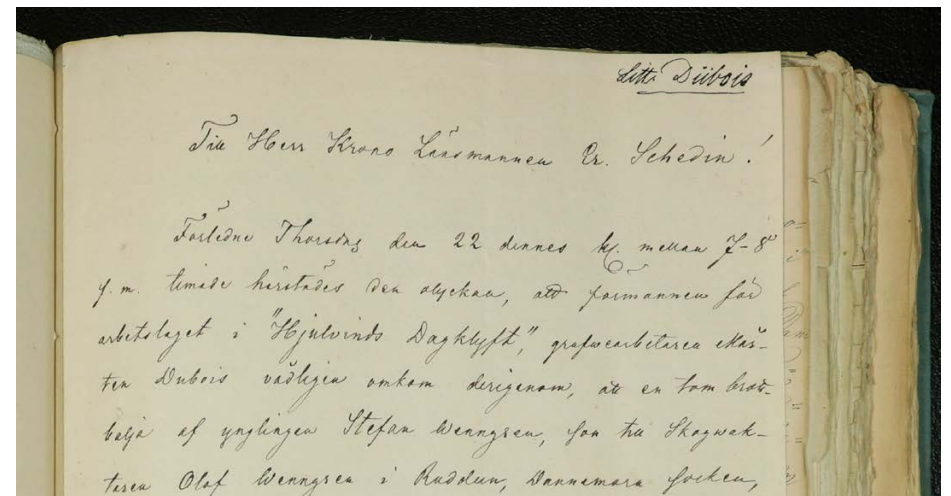 Litt. Dübois
Till Herr Krono Länsmannen Cr. Schedin!
Förledne Thorsdag den 22 dennes kl. mellan 7-8
f.m. timade härstädes den olyckan, att förmannen för
arbetslaget i "Hjulvinds Dagklyft", grufvearbetaren Mår-
ten Dubois vådligen omkom derigenom, att en tom
balja af ynglingen Stefan Wenngren, son till Skogwak-
taren Olof Wenngren i Dannemora socken,